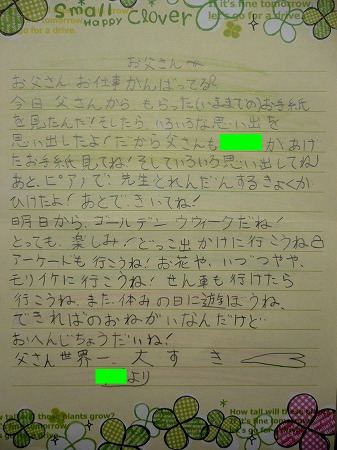 Small
HAPPY Clover
If it's fine tomorrow,
let's go for a drive.
お父さんへ
お父さん お仕事がんばってる?
今日 父さんから もらった(いままでの)お手紙
を見たんだ!そしたら、いろいろな思い出を
思い出したよ!だから父さんも かあげ
たお手紙 見てね!そしていろいろ思い出してね!
あと、ピアノで、先生とれんだんするきょくが
ひけたよ!あとで、きいてね!
明日から、ゴールデン ウウィークだね!
とっても、楽しみ!どっこ出かけに行こうね
アーケードも行こうね!お花や、いつつやや、
モリイケに行こうね!せん車も行けたら
行こうね。また、休みの日に遊ぼうね、
できればのおねがいなんだけど…
おへんじちょうだいね!
父さん世界一、大すき
より
How tall will these